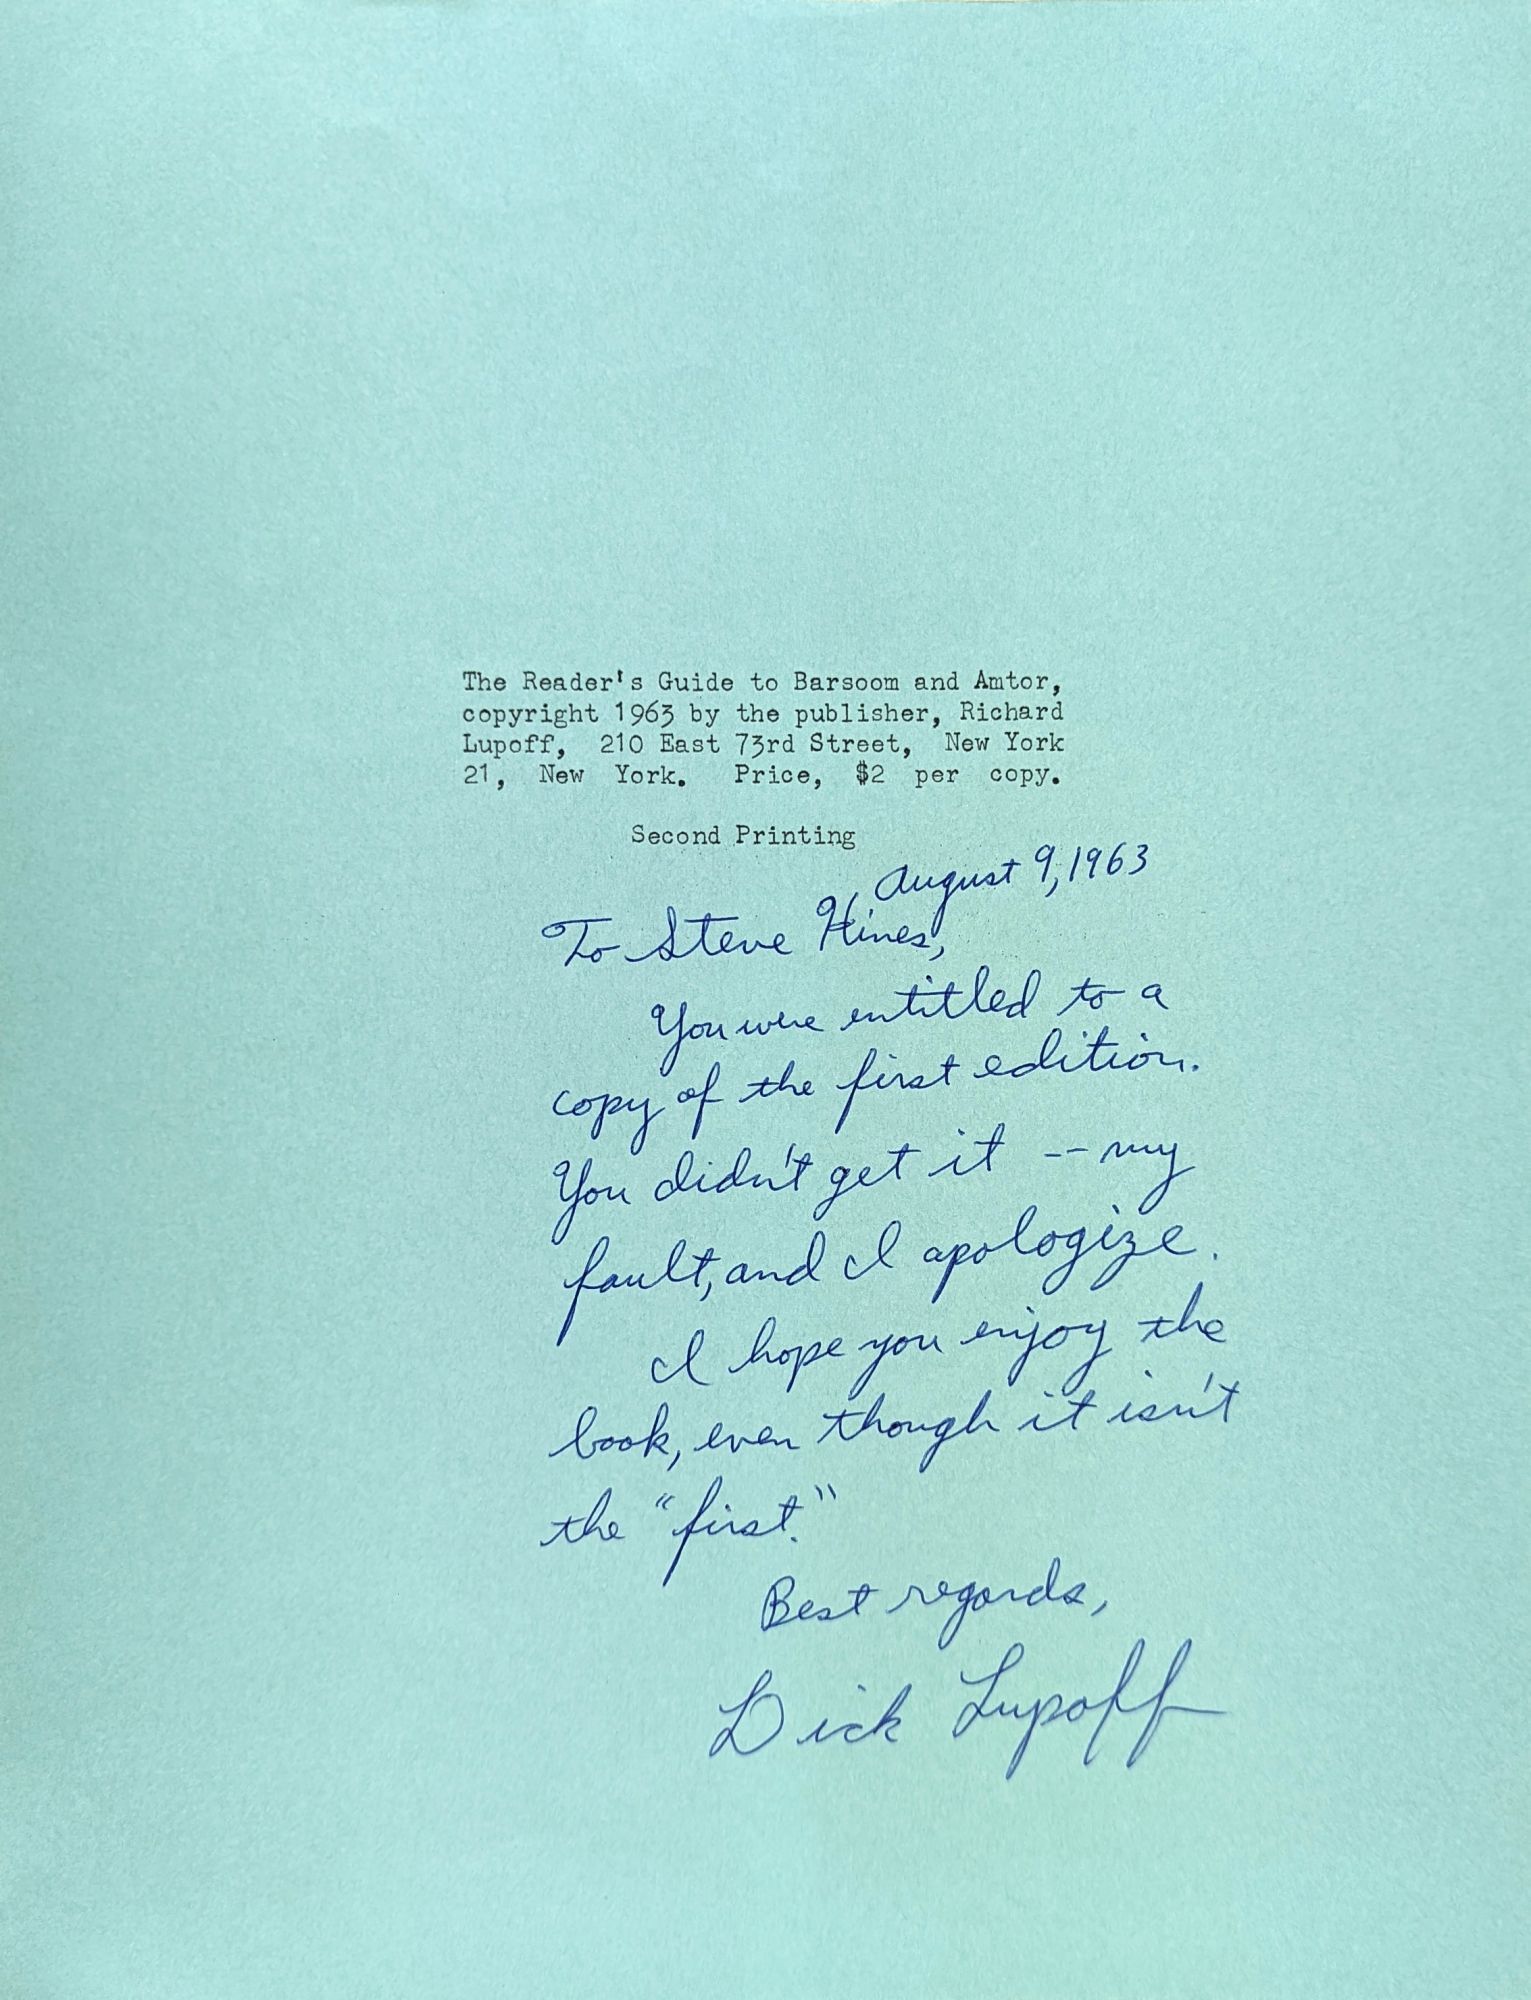 The Reader's Guide to Barsoom and Amtor,
copyright 1963 by the publisher, Richard
Lupoff, 210 East 73rd Street, New York
21, New York. Price, $2 per copy.
Second Printing
August 9, 1963
To Steve Hines,
You were entitled to a
copy of the first edition.
You didn't get it -- my
fault, and I apologize.
I hope you enjoy the
book, even though it isn't
the "first."
Best regards,
Dick Lupoff